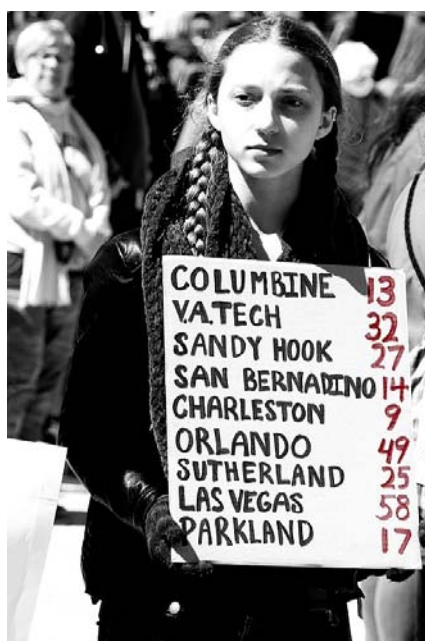 COLUMBINE 13
V.A.TECH 32
SANDY HOOK 27
SAN BERNADINO 14
CHARLESTON 9
ORLANDO 49
SUTHERLAND 25
LAS VEGAS 58
PARKLAND 17